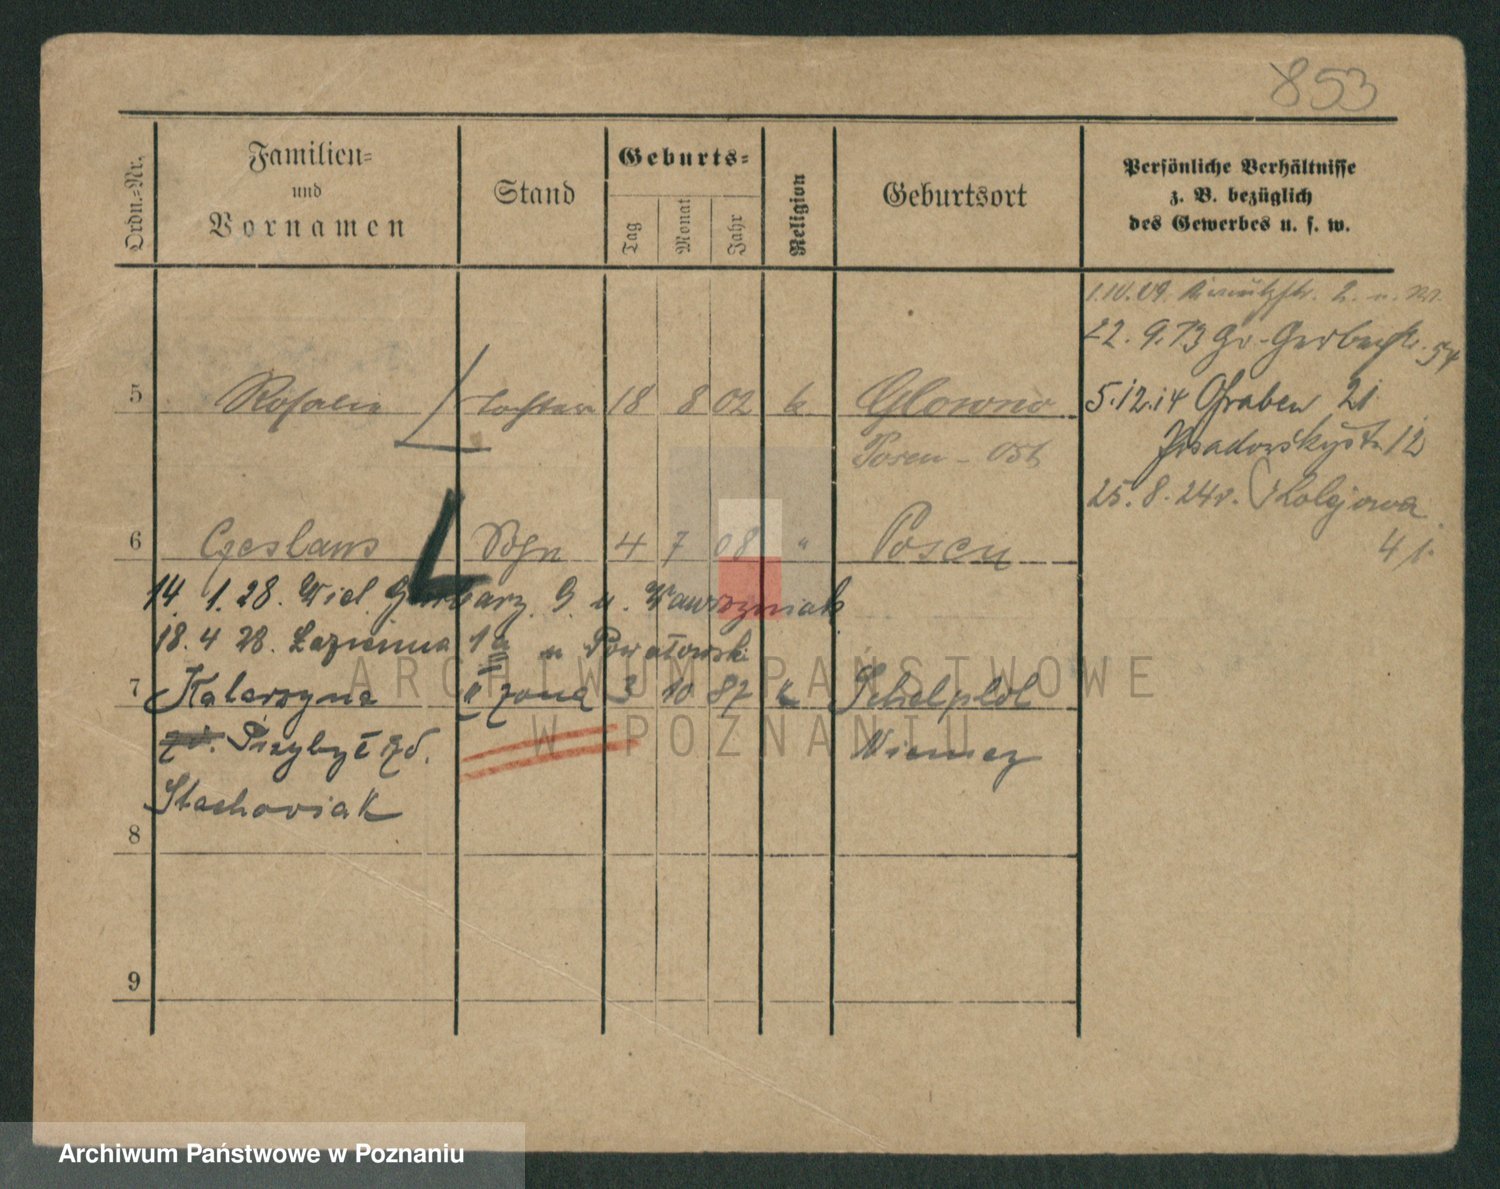 853
Ordn.=Nr.
Familien=
und
Vornamen
Stand
Geburts=
Tag
Monat
Jahr
Religion
Geburtsort
Persönliche Verhältnisse
z. B. bezüglich
des Gewerbes u. s. w.
1. IV. 09.
22. 9. 13 Gr. Gerberstr. 54
5 Rosalie Tochter 18 8 02 k. Glowno
5.12.14 Graben 21
Posen - Ost
12
25. 8. 24 r. Kolejowa
41.
6 Czeslaus Sohn 4 7 08 " Posen
14. 1. 28. Wiel. Garbarz. 9 u. Wawrzyniak
18. 4 28. Łazienna 1a u Powałowski
7 Katarzyna II żona 3 10 87 k
zd. Przybył zd. Niemcy
Stachowiak
8
9
ARCHIWUM PAŃSTWOWE
W POZNANIU
Archiwum Państwowe w Poznaniu